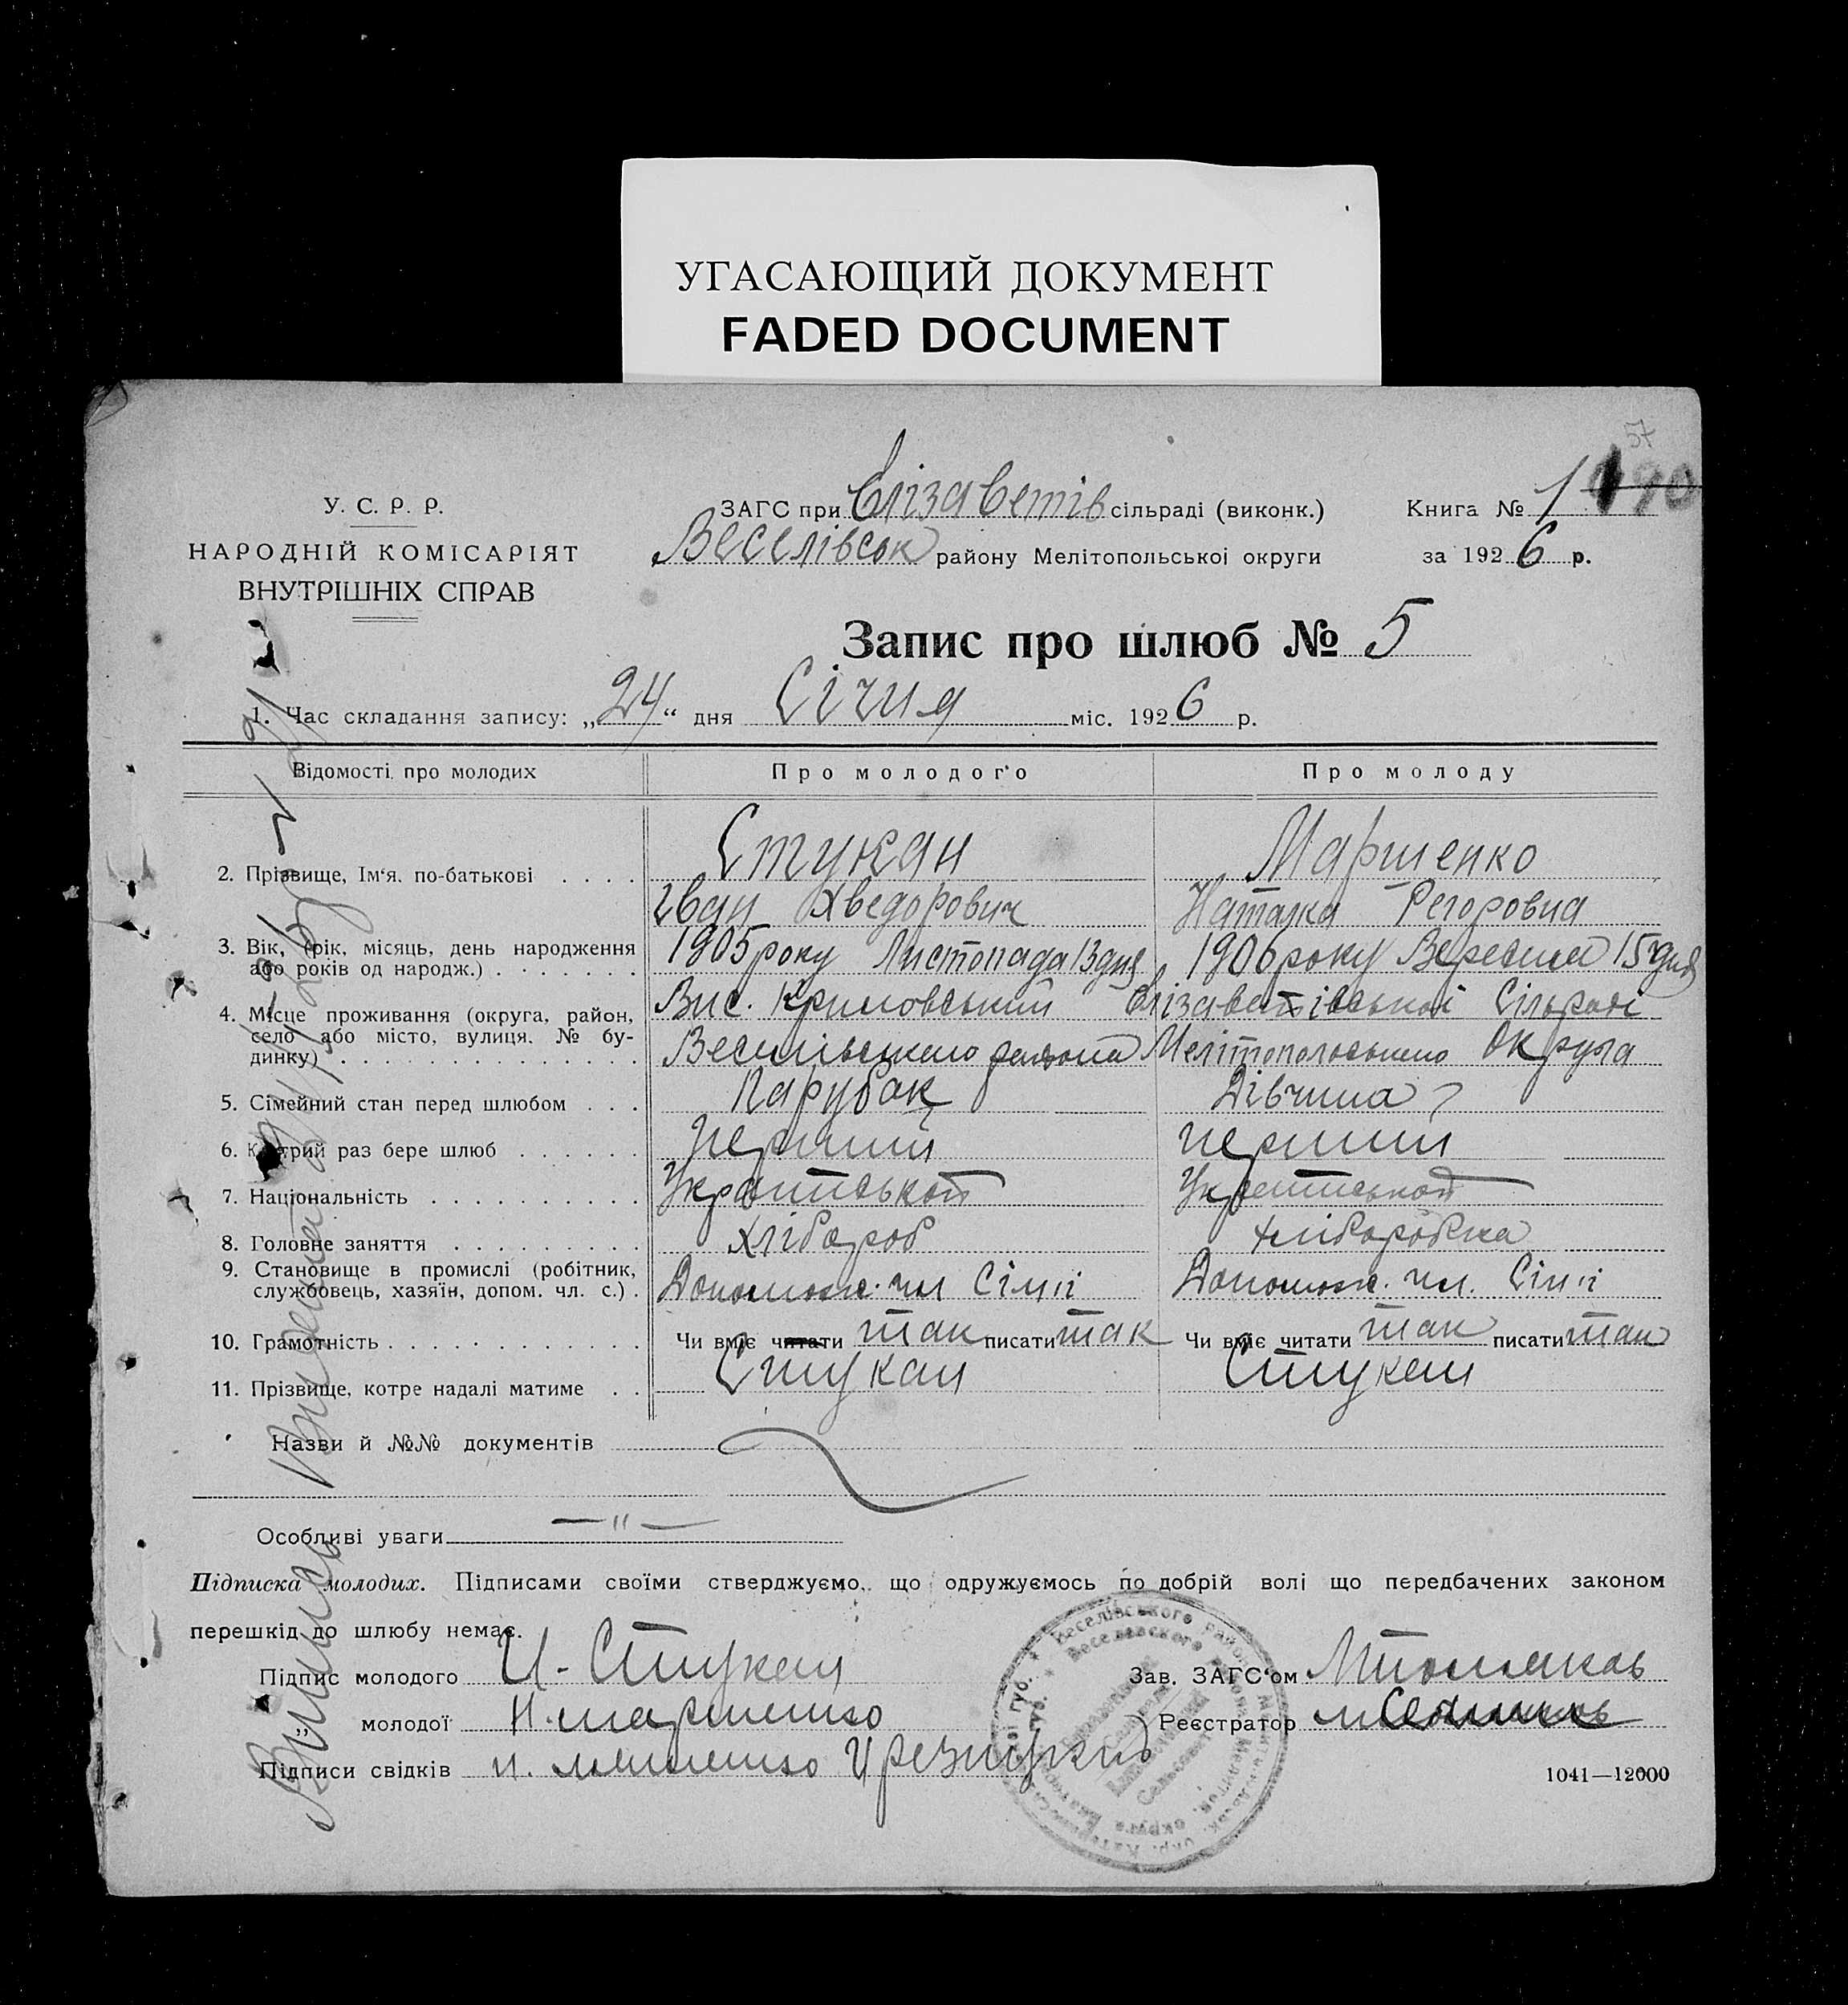 УГАСАЮЩИЙ ДОКУМЕНТ
FADED DOCUMENT
57
У. С. Р. Р.
НАРОДНІЙ КОМІСАРІЯТ
ВНУТРІШНІХ СПРАВ
ЗАГС при Єлізаветів сільраді (виконк.)
Веселівськ району Мелітопольської округи
Книга № 1 190
за 1926 р.
Запис про шлюб № 5
1. Час складання запису: „24“ дня Січня міс. 1926 р.
Відомості про молодих Про молодого Про молоду
2. Прізвище, Ім‘я. по-батькові . . . . Стукан Марченко
Іван Хведорович Наталка Регоровна
3. Вік, (рік, місяць, день народження 1905 року Листопада 13 дня 1906 року Вересня 15 дня
або років од народж.) . . . . . . .
4. Місце проживання (округа, район, Вис. Кримовський Єлізаветівської Сільраді
село або місто, вулиця. № бу-
динку) . . . . . . . . . . . . . . Веселівського района Мелітопольського Округа
5. Сімейний стан перед шлюбом . . . Парубак Дівчина
6. Котрий раз бере шлюб . . . . . . перший перший
7. Національність . . . . . . . . . . Української Української
8. Головне заняття . . . . . . . . . Хлібороб Хліборобка
9. Становище в промислі (робітник,
службовець, хазяїн, допом. чл. с.) . Допомож. чл Сімї Допомож. чл. Сімї
10. Грамотність . . . . . . . . . . . . Чи вміє читати так писати так Чи вміє читати так писати так
11. Прізвище, котре надалі матиме . . Стукан Стукан
Назви й №№ документів
Особливі уваги — " —
Підписка молодих. Підписами своїми стверджуємо, що одружуємось по добрій волі що передбачених законом
перешкід до шлюбу немає.
Підпис молодого И. Стукан Зав. ЗАГС‘ом
„ молодої Н. Марченко Реєстратор
Підписи свідків
1041—12000